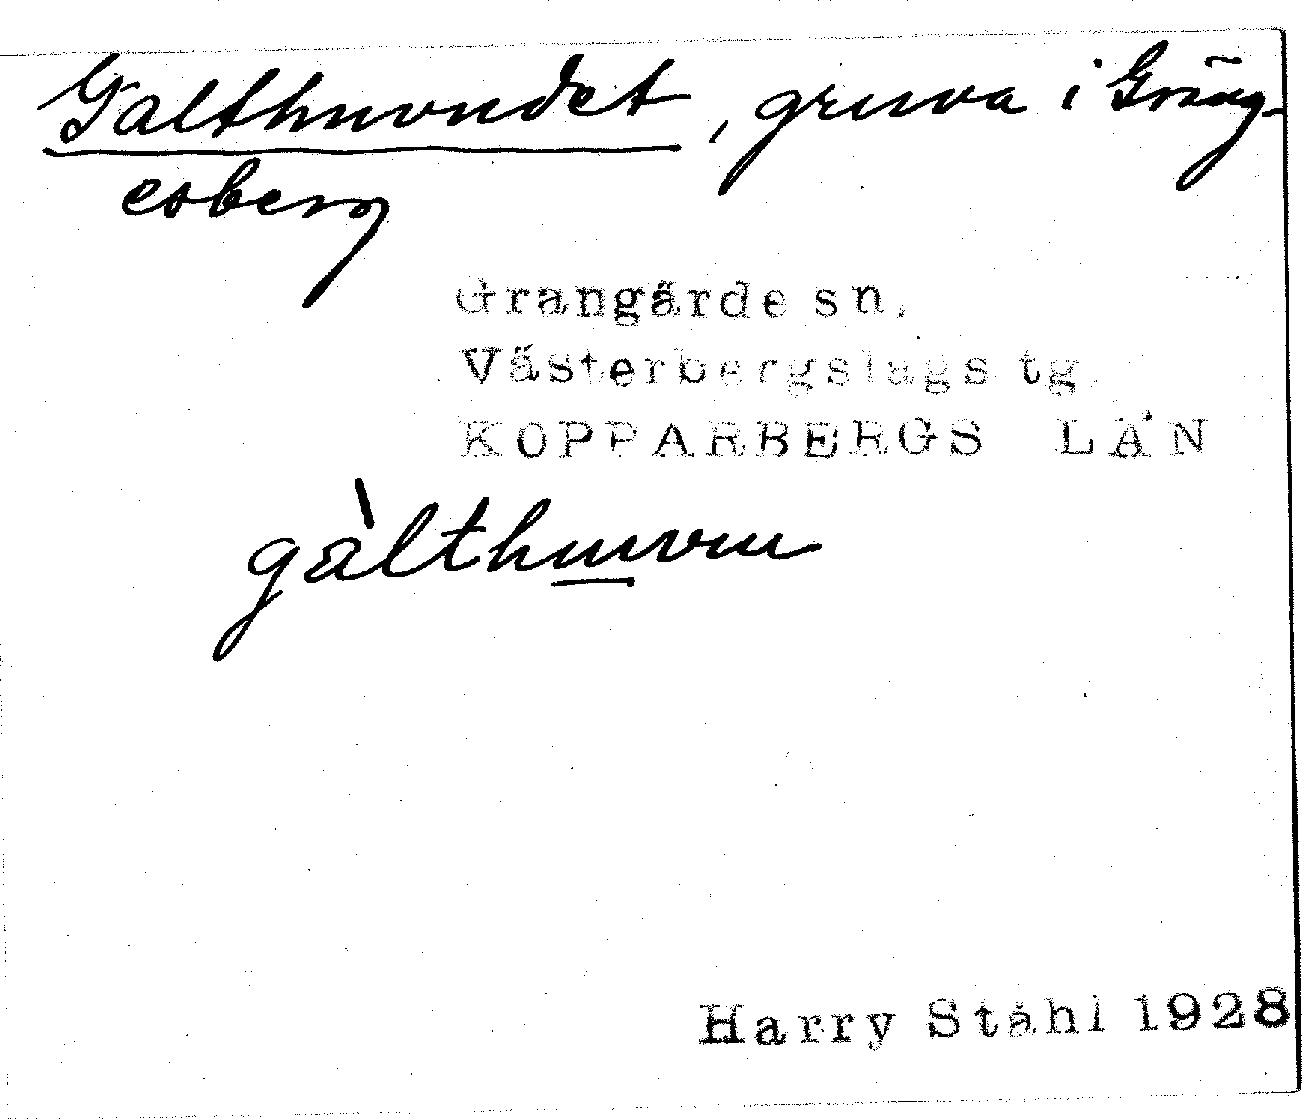 Galthuvudet, gruva i Gräng-
esberg
Grangärde sn.
Västerbergslags tg
KOPPARBERGS LÄN
gàlthuvvu
Harry Ståhl 1928